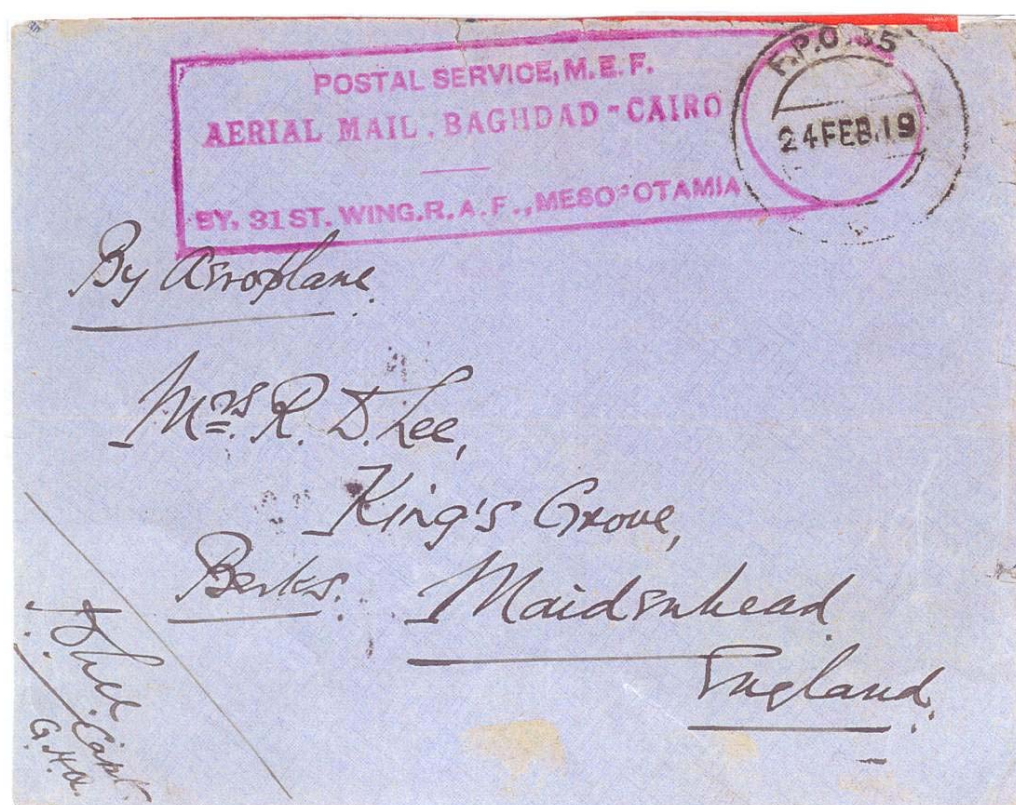 POSTAL SERVICE, M.E.F.
AERIAL MAIL. BAGHDAD - CAIRO
BY. 31ST. WING. R.A.F., MESOPOTAMIA
F.P.O. 35
24 FEB. 19
By Aeroplane.
Mrs. R. D. Lee,
King's Grove,
Berks. Maidenhead
England.
Capt.
G.H.Q.